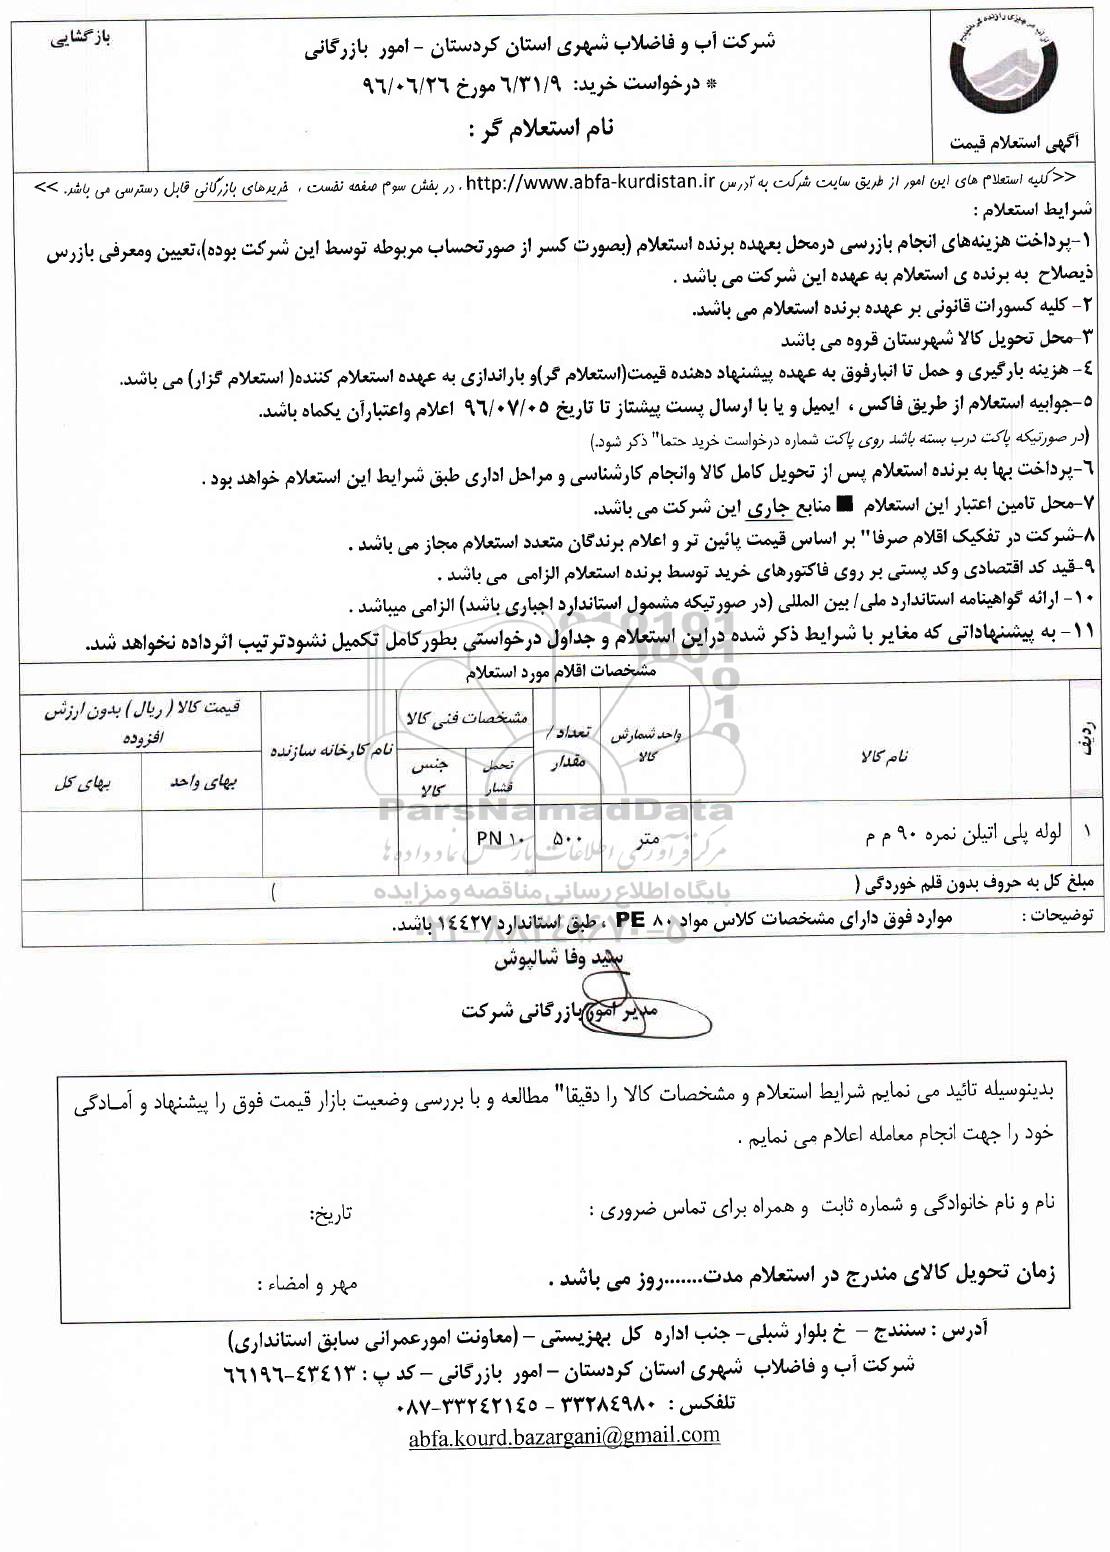 بازگشایی
شرکت آب و فاضلاب شهری استان کردستان – امور بازرگانی
* درخواست خرید: ۶/۳۱/۹ مورخ ۹۶/۰۶/۲۶
نام استعلام گر :
آگهی استعلام قیمت
<<کلیه استعلام های این امور از طریق سایت شرکت به آدرس http://www.abfa-kurdistan.ir ، در بخش سوم صفحه نخست ، خریدهای بازرگانی قابل دسترسی می باشد. >>
شرایط استعلام :
۱-پرداخت هزینه‌های انجام بازرسی درمحل بعهده برنده استعلام (بصورت کسر از صورتحساب مربوطه توسط این شرکت بوده)،تعیین ومعرفی بازرس
ذیصلاح به برنده ی استعلام به عهده این شرکت می باشد .
۲- کلیه کسورات قانونی بر عهده برنده استعلام می باشد.
۳-محل تحویل کالا شهرستان قروه می باشد
۴- هزینه بارگیری و حمل تا انبارفوق به عهده پیشنهاد دهنده قیمت(استعلام گر)و باراندازی به عهده استعلام کننده( استعلام گزار) می باشد.
۵-جوابیه استعلام از طریق فاکس ، ایمیل و یا با ارسال پست پیشتاز تا تاریخ ۹۶/۰۷/۰۵ اعلام واعتبارآن یکماه باشد.
(در صورتیکه پاکت درب بسته باشد روی پاکت شماره درخواست خرید حتما" ذکر شود.)
۶-پرداخت بها به برنده استعلام پس از تحویل کامل کالا وانجام کارشناسی و مراحل اداری طبق شرایط این استعلام خواهد بود .
۷-محل تامین اعتبار این استعلام ■ منابع جاری این شرکت می باشد.
۸-شرکت در تفکیک اقلام صرفا" بر اساس قیمت پائین تر و اعلام برندگان متعدد استعلام مجاز می باشد .
۹-قید کد اقتصادی وکد پستی بر روی فاکتورهای خرید توسط برنده استعلام الزامی می باشد .
۱۰- ارائه گواهینامه استاندارد ملی/ بین المللی (در صورتیکه مشمول استاندارد اجباری باشد) الزامی میباشد .
۱۱- به پیشنهاداتی که مغایر با شرایط ذکر شده دراین استعلام و جداول درخواستی بطورکامل تکمیل نشودترتیب اثرداده نخواهد شد.
مشخصات اقلام مورد استعلام
ردیف
نام کالا
واحد شمارش کالا
تعداد / مقدار
مشخصات فنی کالا
تحمل فشار
جنس کالا
نام کارخانه سازنده
قیمت کالا ( ریال ) بدون ارزش افزوده
بهای واحد
بهای کل
۱ لوله پلی اتیلن نمره ۹۰ م م متر ۵۰۰ PN ۱۰
مبلغ کل به حروف بدون قلم خوردگی ( )
توضیحات : موارد فوق دارای مشخصات کلاس مواد ۸۰ PE ، طبق استاندارد ۱۴۴۲۷ باشد.
ParsNamadData
مرکز فرآوری اطلاعات پارس نماد داده‌ها
پایگاه اطلاع رسانی مناقصه و مزایده
سید وفا شالپوش
مدیر امور بازرگانی شرکت
بدینوسیله تائید می نمایم شرایط استعلام و مشخصات کالا را دقیقا" مطالعه و با بررسی وضعیت بازار قیمت فوق را پیشنهاد و آمـادگی
خود را جهت انجام معامله اعلام می نمایم .
نام و نام خانوادگی و شماره ثابت و همراه برای تماس ضروری : تاریخ:
زمان تحویل کالای مندرج در استعلام مدت.......روز می باشد . مهر و امضاء :
آدرس : سنندج – خ بلوار شبلی- جنب اداره کل بهزیستی – (معاونت امورعمرانی سابق استانداری)
شرکت آب و فاضلاب شهری استان کردستان – امور بازرگانی – کد پ : ۴۳۴۱۳-۶۶۱۹۶
تلفکس : ۳۳۲۸۴۹۸۰ - ۳۳۲۴۲۱۴۵-۰۸۷
abfa.kourd.bazargani@gmail.com